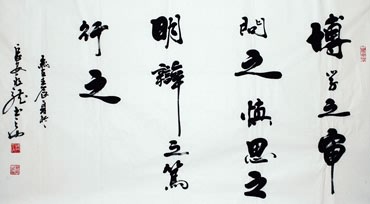 博学之审
问之慎思之
明辩之笃
行之